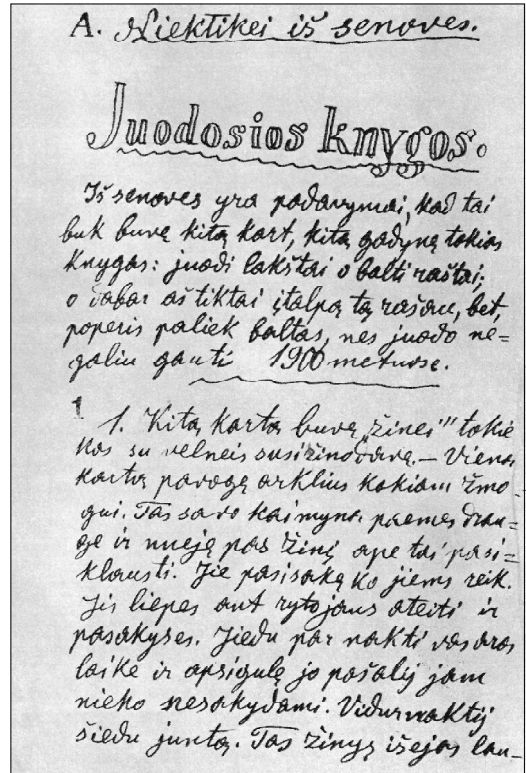 A. Niektikei iš senoves.
Juodosios knygos.
Iš senoves yra padavymai, kad tai
buk buvę kitą kart, kitą gadynę tokias
knygas: juodi lakštai o balti raštai;
o dabar aš tiktai įtalpą tą rašau, bet,
poperis paliek baltas, nes juodo ne=
galiu gauti 1900 metuose.
1
1. Kitą kartą buvę „žinei" tokie
kas su velneis susižinodavę. – Viena
kartą pavogę arklius kokiam žmo-
gui. Tas savo kaimyną paemęs drau-
ge ir nueję pas žinį ape tai pasi=
klausti. Jie pasisaką ko jiems reik.
Jis liepęs ant rytojaus ateiti ir
pasakyses. Jiedu par nakti vasaros
laike ir apsigulę jo pašalij jam
nieko nesakydami. Vidurnaktij
šiedu juntą. Tas žinys išejas lau-